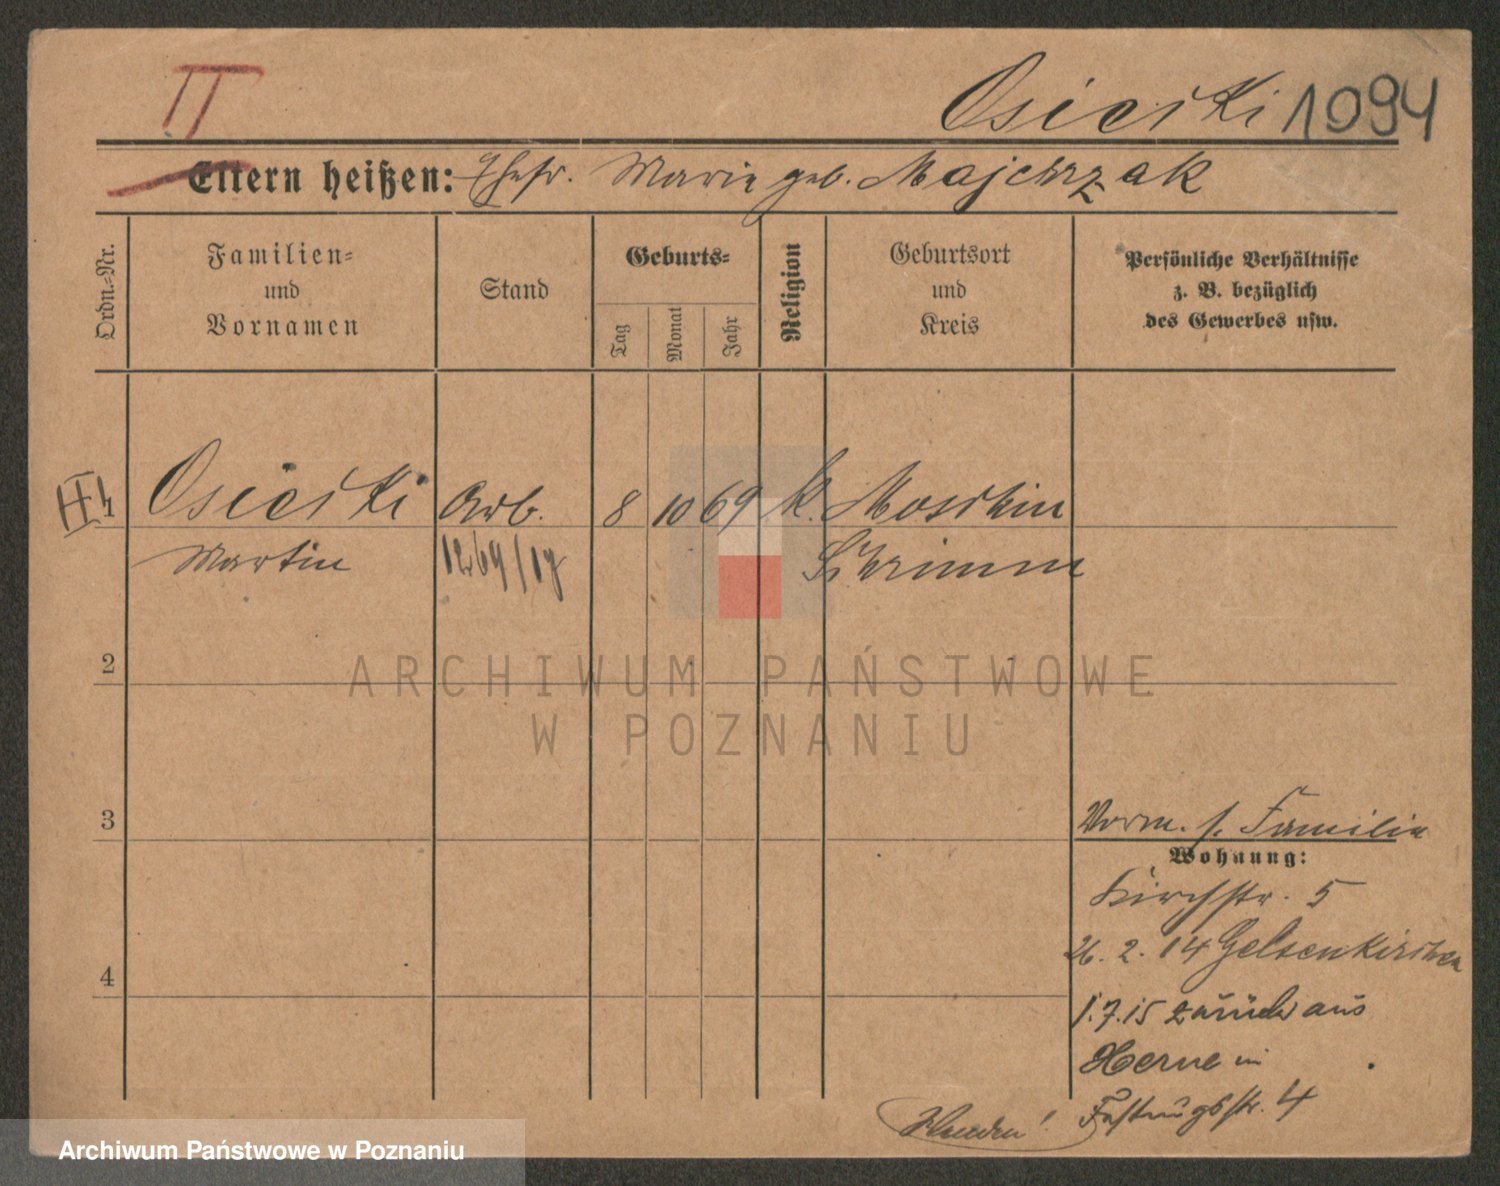 II
Osiecki 1094
Eltern heißen: Ehefr. Marie geb. Majchrzak
Ordn.-Nr.
Familien-
und
Vornamen
Stand
Geburts-
Tag
Monat
Jahr
Religion
Geburtsort
und
Kreis
Persönliche Verhältnisse
z. B. bezüglich
des Gewerbes usw.
1 Osiecki Arb. 8 10 69 k. Moschin
Martin 1269/17 Schrimm
2
ARCHIWUM PAŃSTWOWE
W POZNANIU
3
Vorm. s. Familie
Wohnung:
Kirchstr. 5
26. 2. 14 Gelsenkirchen
4
1.7.15 zurück aus
Herne in
Festungsstr. 4
Archiwum Państwowe w Poznaniu